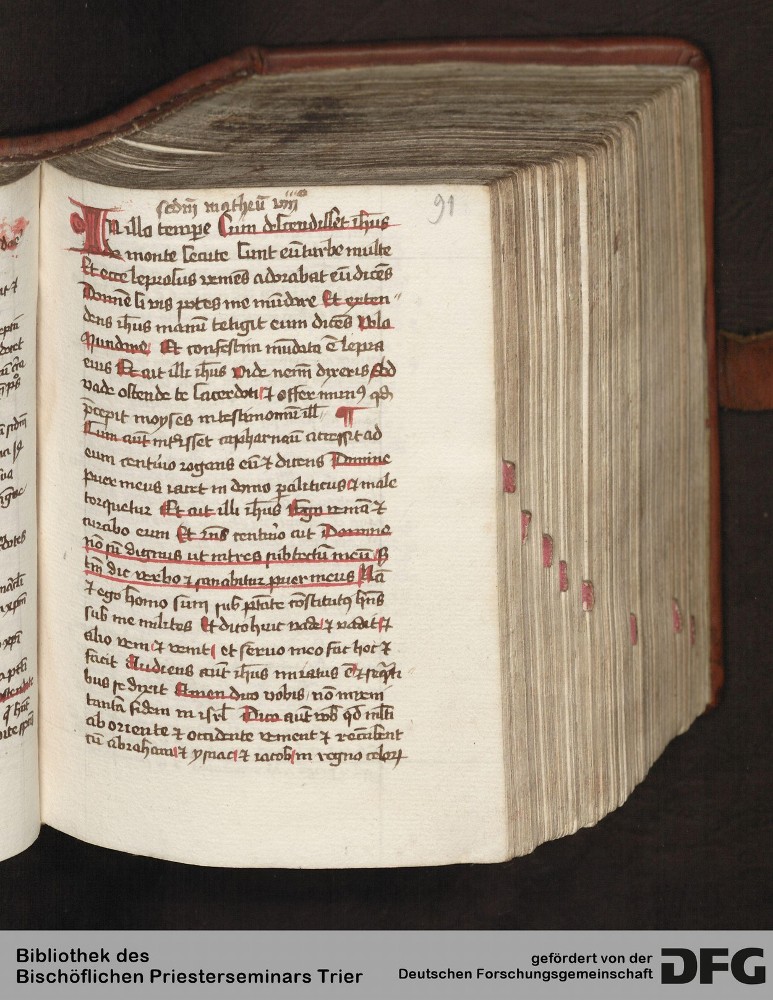 scdm matheu viii°
91
In illo tempore Cum descendisset ihus
de monte secute sunt eu turbe multe
Et ecce leprosus veniens adorabat eu dices
Domine si vis potes me mudare Et exten
dens ihus manu tetigit eum dices Volo
Mundare Et confestim mudata e lepra
eius Et ait illi ihus vide nemini dixeris Sed
vade ostende te sacerdoti et offer munus qd
precepit moyses in testimonium ill
Cum aut introisset capharnau accessit ad
eum centurio rogans eu et dicens Domine
puer meus iacet in domo paraliticus et male
torquetur Et ait illi ihus Ego venia et
curabo eum Et rns centurio ait Domine
no su dignus ut intres sub tectu meu S
tm dic verbo et sanabitur puer meus Na
et ego homo sum sub ptate constitutus hns
sub me milites Et dico huic vade et vadit et
alio veni et venit et servo meo fac hoc et
facit Audiens aut ihus miratus e et sequenti
bus se dixit Amen dico vobis no inveni
tanta fidem in isrl Dico aut vob qd multi
ab oriente et occidente venient et recubent
cu abraham et ysaac et iacob in regno celor
Bibliothek des
Bischöflichen Priesterseminars Trier
gefördert von der
Deutschen Forschungsgemeinschaft
DFG